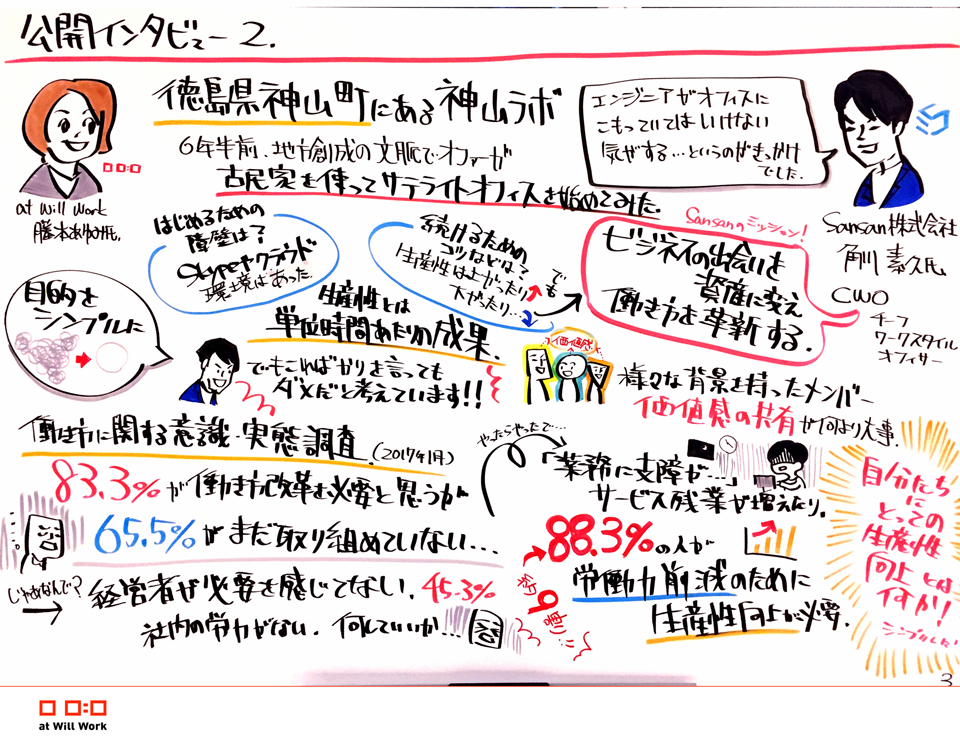 公開インタビュー2.
徳島県神山町にある神山ラボ
6年半前、地方創成の文脈でオファーが
古民家を使ってサテライトオフィスを始めてみた.
エンジニアがオフィスに
こもっていてはいけない
気がする…というのがきっかけ
でした.
at Will Work
藤本あゆみ氏.
Sansan株式会社
角川素久氏.
CWO
チーフ
ワークスタイル
オフィサー
はじめるための
障壁は?
Skypeやクラウド
環境はあった.
続けるための
コツなどは?
生産性は上がったり
下がったり…
でも
Sansanのミッション!
ビジネスの出会いを
資産に変え
働き方を革新する.
目的を
シンプルに
生産性とは
単位時間あたりの成果.
でもこればかりを言っても
ダメだと考えています!!
価値感
様々な背景を持ったメンバー
価値感の共有が何より大事.
働き方に関する意識・実態調査.(2017年1月)
83.3%が働き方改革を必要と思うが
65.5%がまだ取り組めていない…
じゃあなんで?
経営者が必要を感じてない. 45.3%
社内の労力がない. 何していいか…
やったらやったで…
「業務に支障が…」
サービス残業が増えたり.
88.3%の人が
労働力削減のために
生産性向上が必要.
約9割…
自分たち
にとっての
生産性
向上とは
何か!
シンプルに
3
at Will Work